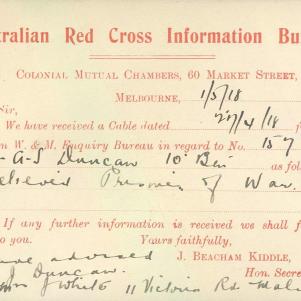 ralian Red Cross Information Bu
COLONIAL MUTUAL CHAMBERS, 60 MARKET STREET,
MELBOURNE, 1/5/18
Sir,
We have received a Cable dated 27/4/18
n W. & M. Enquiry Bureau in regard to No. 157
A-S Duncan 10 Bn as fol
elieved Prisoner of War.
If any further information is received we shall f
to you. Yours faithfully,
ave advised J. BEACHAM KIDDLE,
Duncan. Hon. Secre
White 11 Victoria Rd Mal